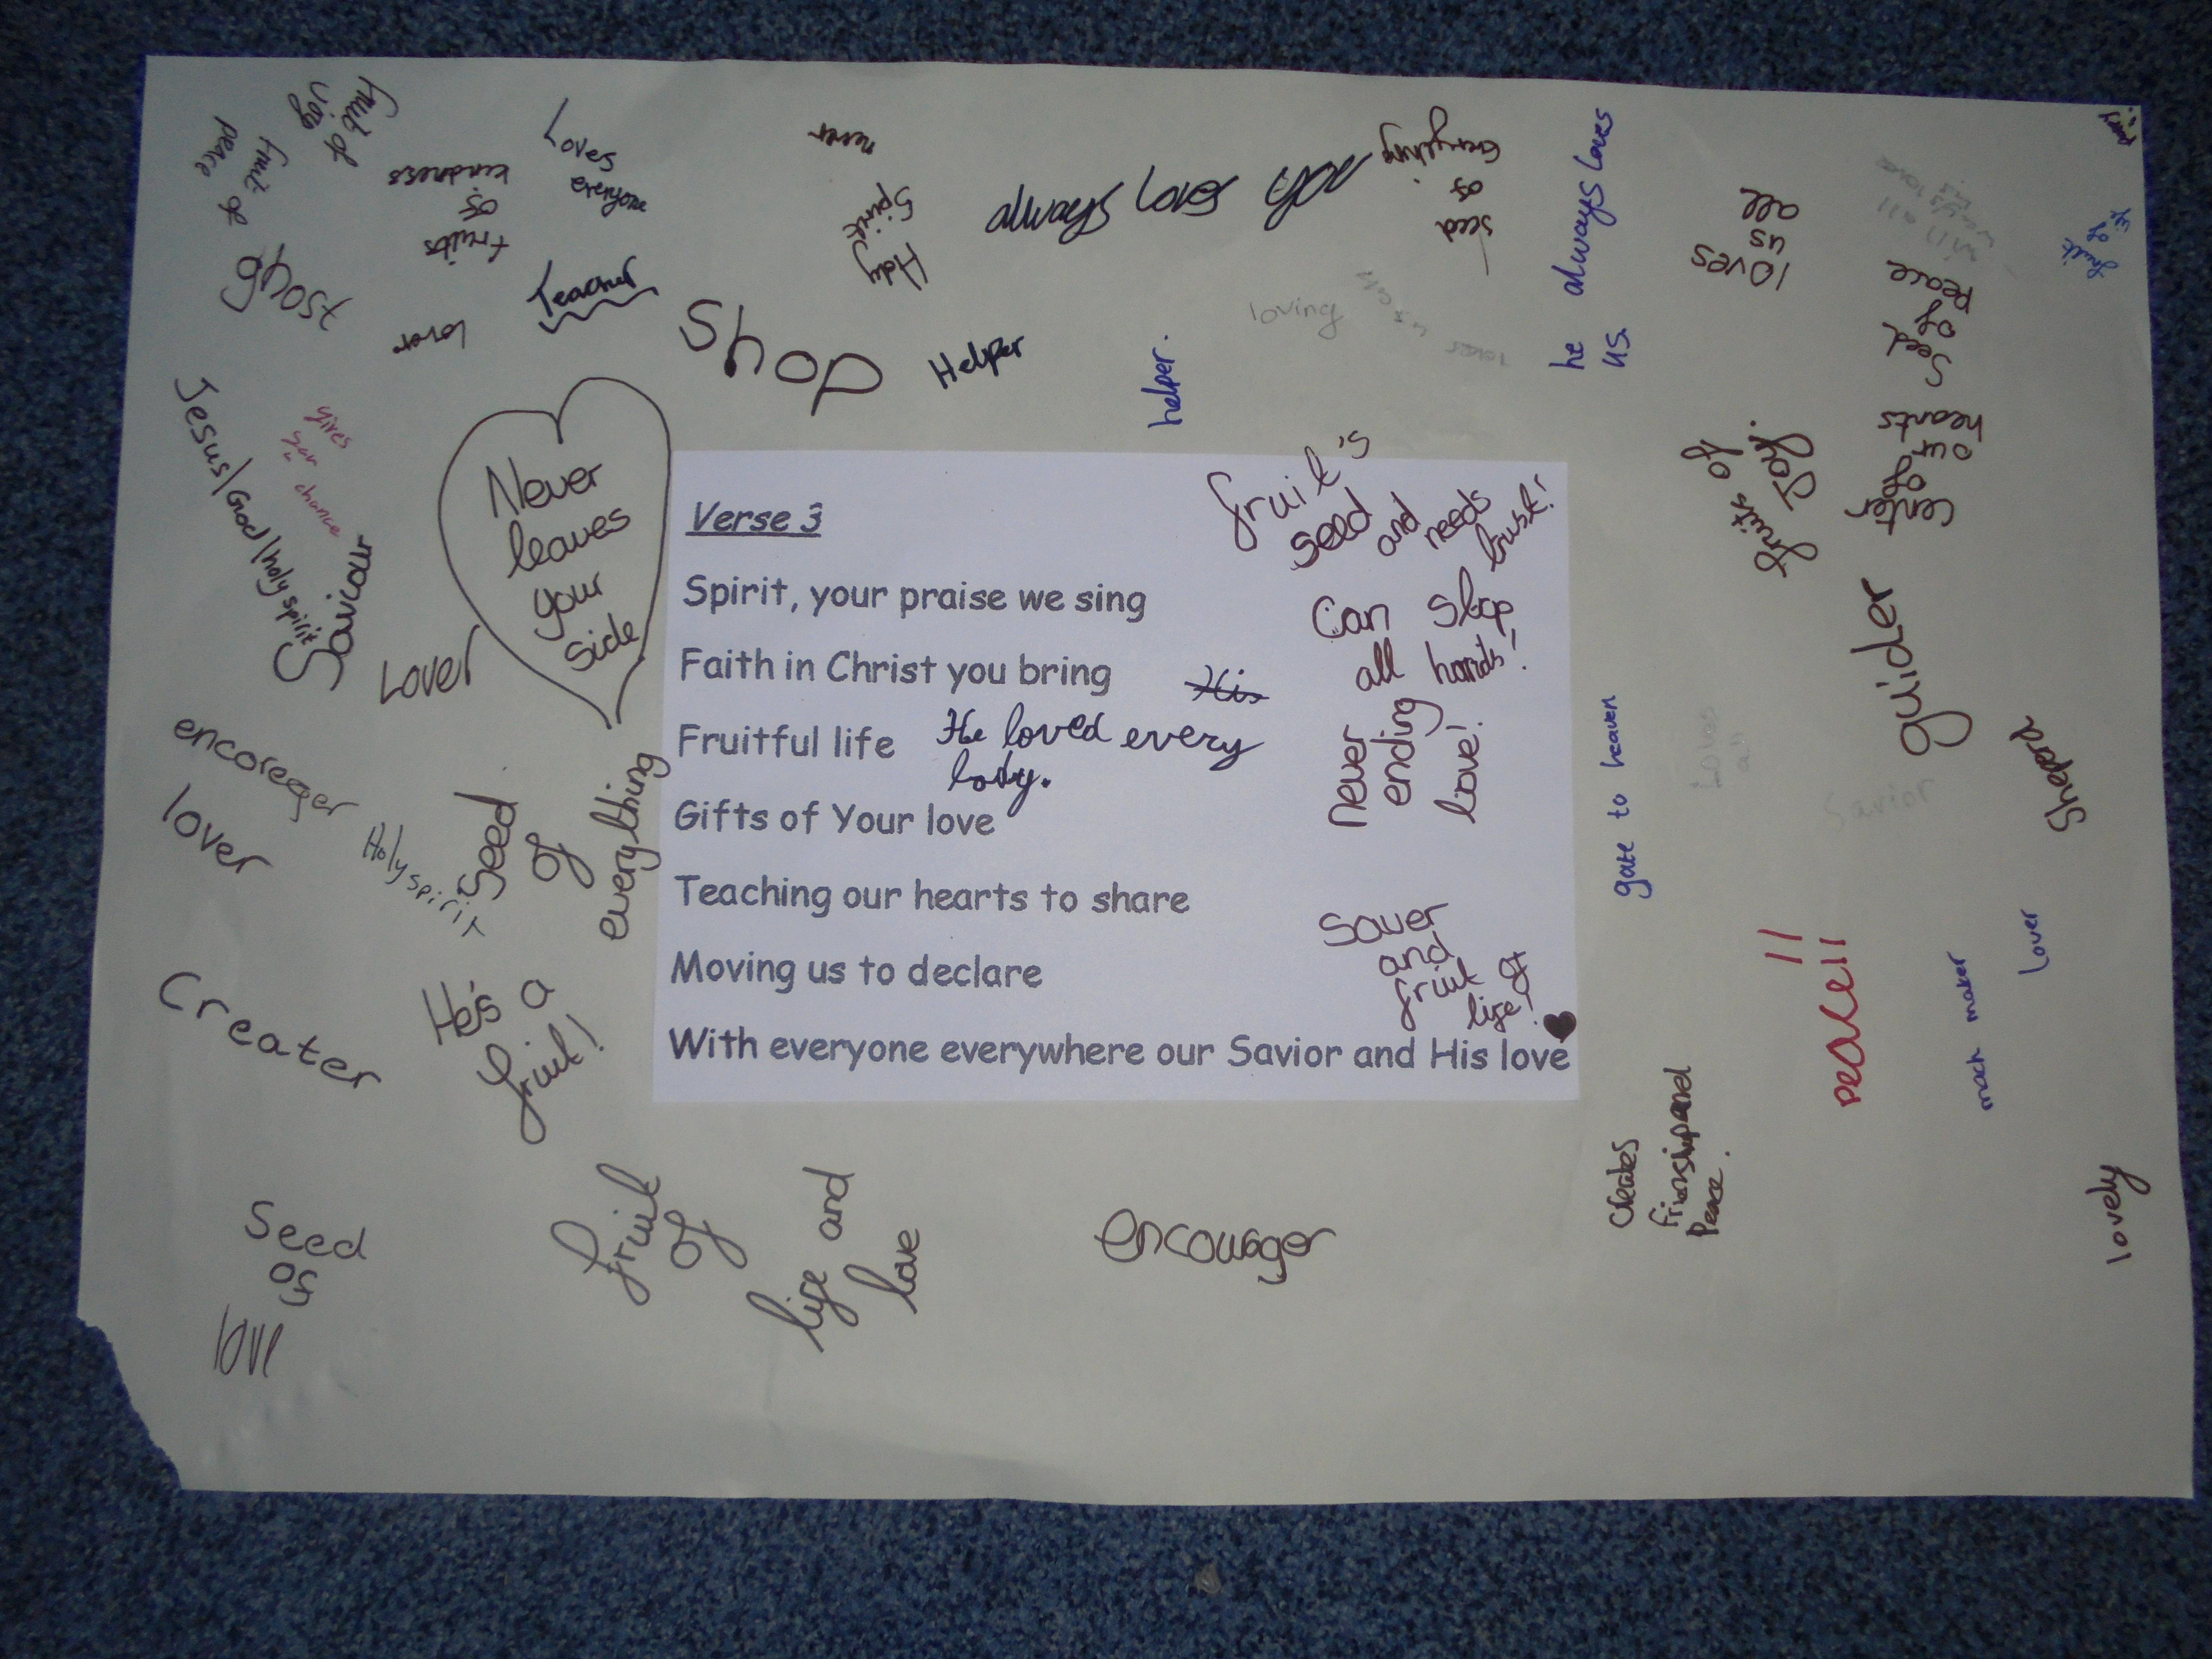 fruit of
joy
fruit of
peace
fruits
of
kindness
Loves
everyone
never
Holy
Spirit
always loves you
seed
of
Everything
he always loves
us.
loves
us
all
will all
ways love
fruit
of
Seed
of
Peace
Ghost
lover
Teacher
Shop
Helper
helper.
loving
loves
us all
Jesus/God/holy spirit
gives
you
a chance
Saviour
Lover
Never
leaves
your
side
center
of
our
hearts
fruits of
Joy.
Verse 3
Spirit, your praise we sing
Faith in Christ you bring
Fruitful life
Gifts of Your love
Teaching our hearts to share
Moving us to declare
With everyone everywhere our Savior and His love
fruit's
seed and needs
trust!
Can stop
all hands!
His
He loved every
body.
Never
ending
love!
Saver
and
fruit of
life!
guider
Sheperd
Savior
Loves
all
gate to heaven
encoreger
lover
Holy spirit
Seed
of
everything
Creater
He's a
fruit!
peace!!
mach maker
Lover
Creates
frionshipand
Peace.
lovely
Seed
of
love
fruit
of
life and
love
encourager